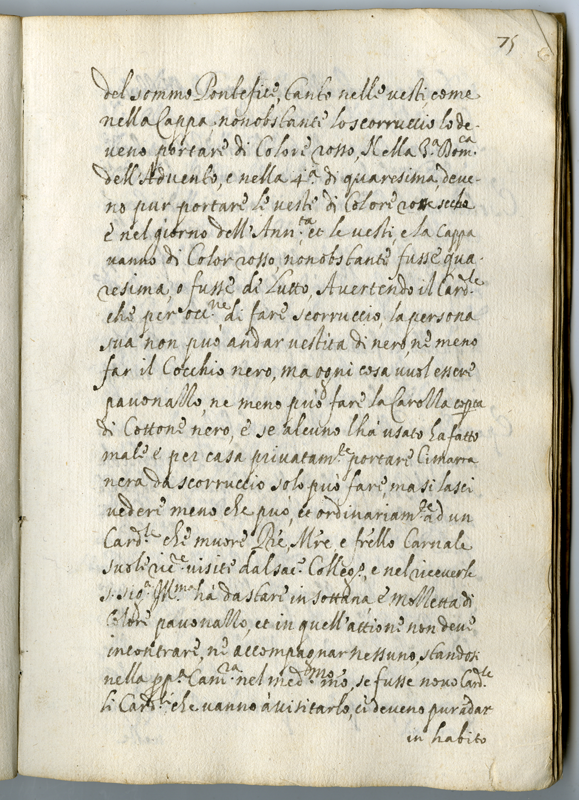 75
del sommo Pontefice, tanto nelle vesti, come
nella Cappa, nonobstante lo scorruccio lo de-
veno portare di Colore rosso, Nella 3.a Dom.ca
dell'Advento, e nella 4.a di quaresima, deve-
no pur portare le vesti di Colore rose secche
e nel giorno dell'Ann.ta et le vesti, e la Cappa
vanno di Color rosso, nonobstante fusse qua-
resima, o fusse di Lutto, Avertendo il Card.le
che per occ.ne di fare scorruccio, la persona
sua non può andar vestita di nero, ne meno
far il Cocchio nero, ma ogni cosa vuol essere
pavonazzo, ne meno può fare la Carozza coperta
di Cottone nero, e se alcuno lhà usato ha fatto
male e per casa privatam.te portare Cimarra
nera da scorruccio solo può fare, ma si lasci
vedere meno che può, et ordinariam.te ad un
Card.le che muore Pre, Mre e frello Carnale
suole ric.e visite dal sac. Colleg.o, e nel riceverle
s. sig.a Ill.ma ha da stare in sottana e mozzetta di
Colore pavonazzo, et in quell'attione non deve
incontrare, ne accompagnar nessuno, standosi
nella pp.a Cam.ra nel med.mo mo, se fusse novo Card.le
li Card.li che vanno à visitarlo, ci deveno pur andar
in habito